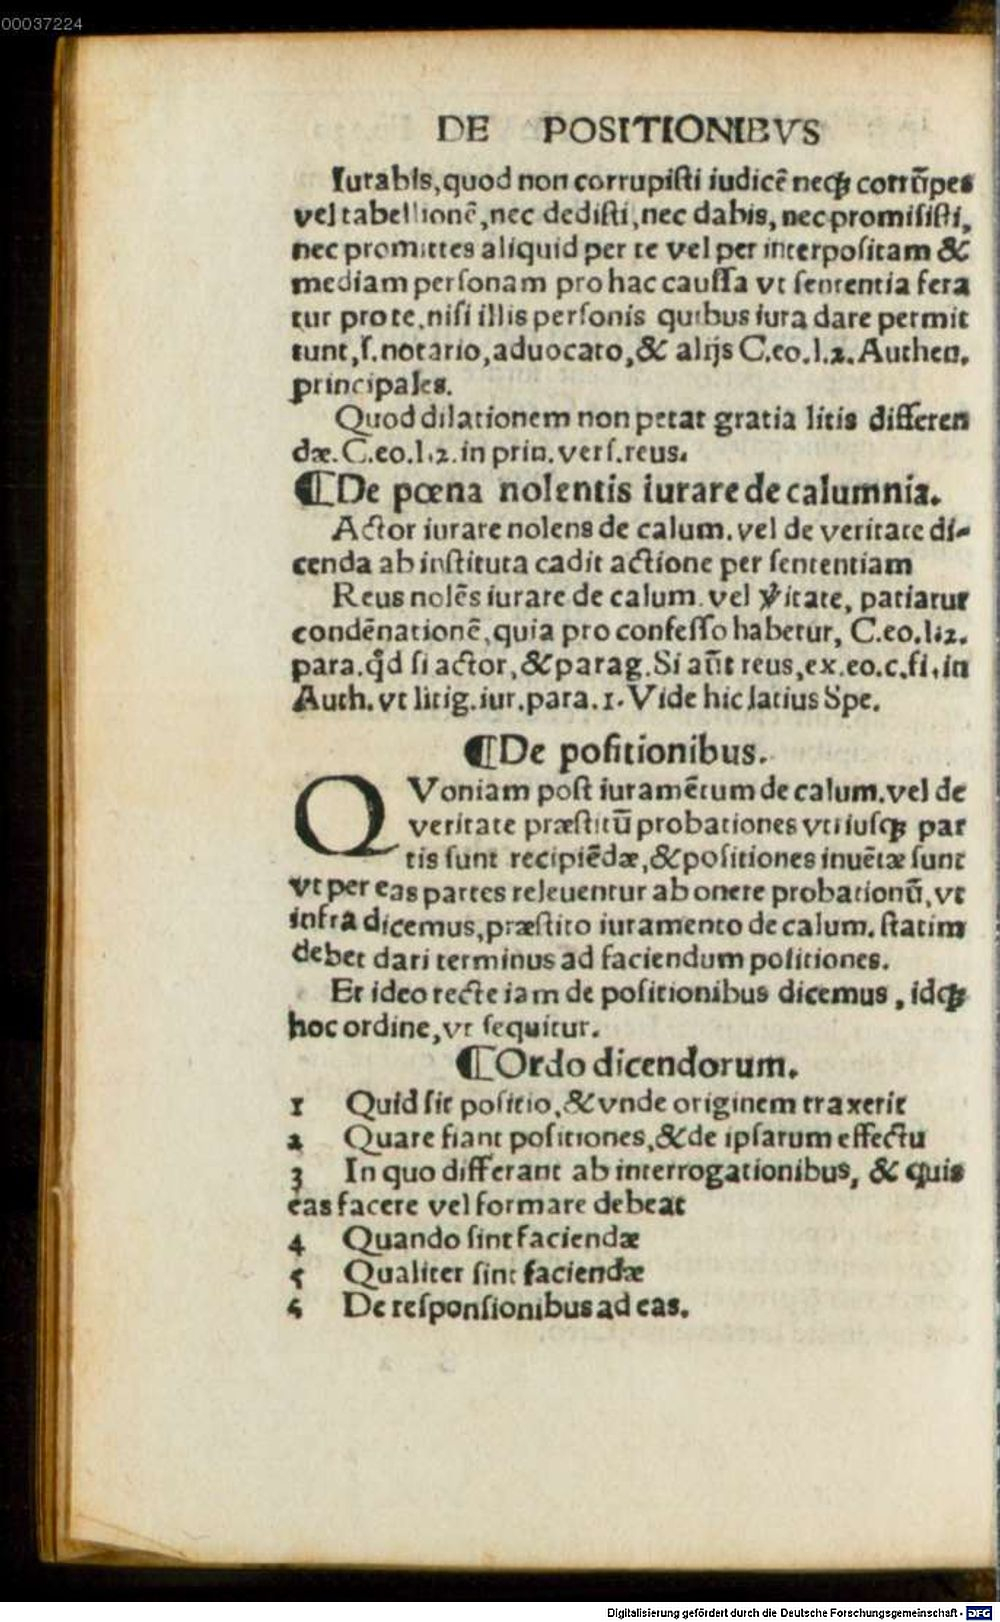 00037224
DE POSITIONIBVS
Iurabis, quod non corrupisti iudicē necꝫ corrūpes
vel tabellionē, nec dedisti, nec dabis, nec promisisti,
nec promittes aliquid per te vel per interpositam &
mediam personam pro hac caussa vt sententia fera
tur pro te, nisi illis personis quibus iura dare permit
tunt, s. notario, aduocato, & alijs C. eo. l. 2. Authen.
principales.
Quod dilationem non petat gratia litis differen
dæ. C. eo. l. 2. in prin. vers. reus.
¶De pœna nolentis iurare de calumnia.
Actor iurare nolens de calum. vel de veritate di-
cenda ab instituta cadit actione per sententiam
Reus nolēs iurare de calum. vel v̓itate, patiatur
condēnationē, quia pro confesso habetur, C. eo. l. 2.
para. qd̓ si actor, & parag. Si aūt reus, ex. eo. c. fi. in
Auth. vt litig. iur. para. 1. Vide hic latius Spe.
¶De positionibus.
QVoniam post iuramētum de calum. vel de
veritate præstitū probationes vtriuscꝫ par
tis sunt recipiēdæ, & positiones inuētæ sunt
vt per eas partes releuentur ab onere probationū, vt
infra dicemus, præstito iuramento de calum. statim
debet dari terminus ad faciendum positiones.
Et ideo recte iam de positionibus dicemus, idcꝫ
hoc ordine, vt sequitur.
¶Ordo dicendorum.
1 Quid sit positio, & vnde originem traxerit
2 Quare fiant positiones, & de ipsarum effectu
3 In quo differant ab interrogationibus, & quis
eas facere vel formare debeat
4 Quando sint faciendæ
5 Qualiter sint faciendæ
6 De responsionibus ad eas.
Digitalisierung gefördert durch die Deutsche Forschungsgemeinschaft - DFG